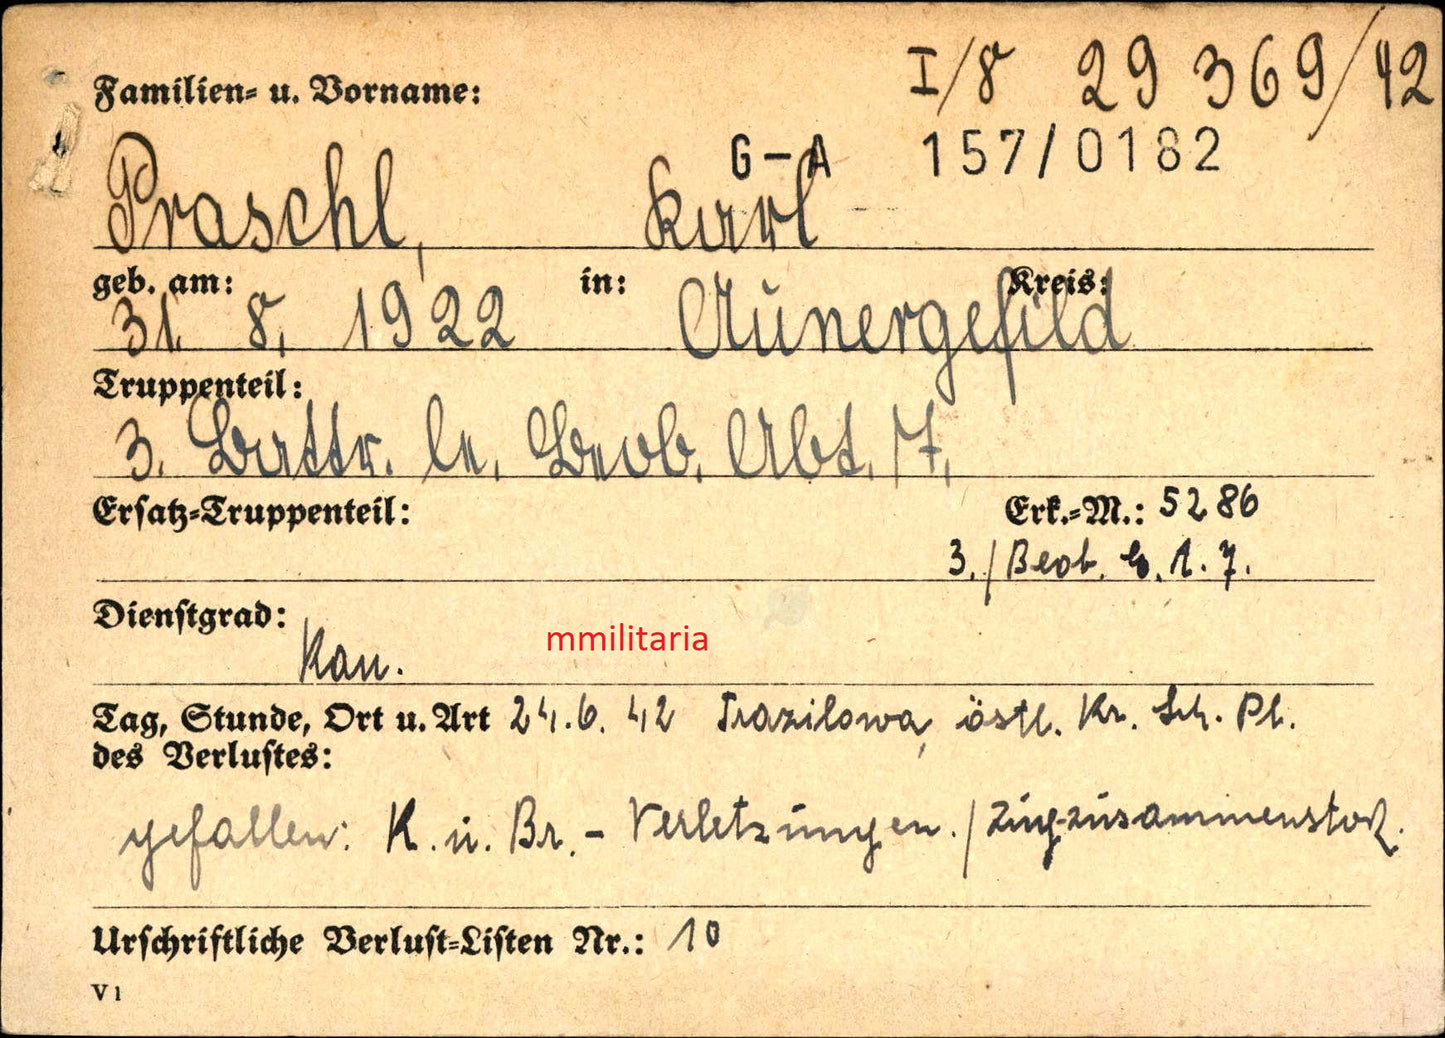 I/8 29 369/42
Familien- u. Vorname:
G-A 157/0182
Praschl, Karl
geb. am: in: Kreis:
31. 8. 1922 Aünergefild
Truppenteil:
3. Battr. le. Beob. Abt. 7.
Ersatz-Truppenteil: Erk.-M.: 5286
3./Beob. E. A. 7.
Dienstgrad:
Kan.
mmilitaria
Tag, Stunde, Ort u. Art 24.6.42 östl. Kr. Sch. Pl.
des Verlustes:
gefallen: K. u. Br.- Verletzungen. / Zugzusammenstoß.
Urschriftliche Verlust-Listen Nr.: 10
V 1